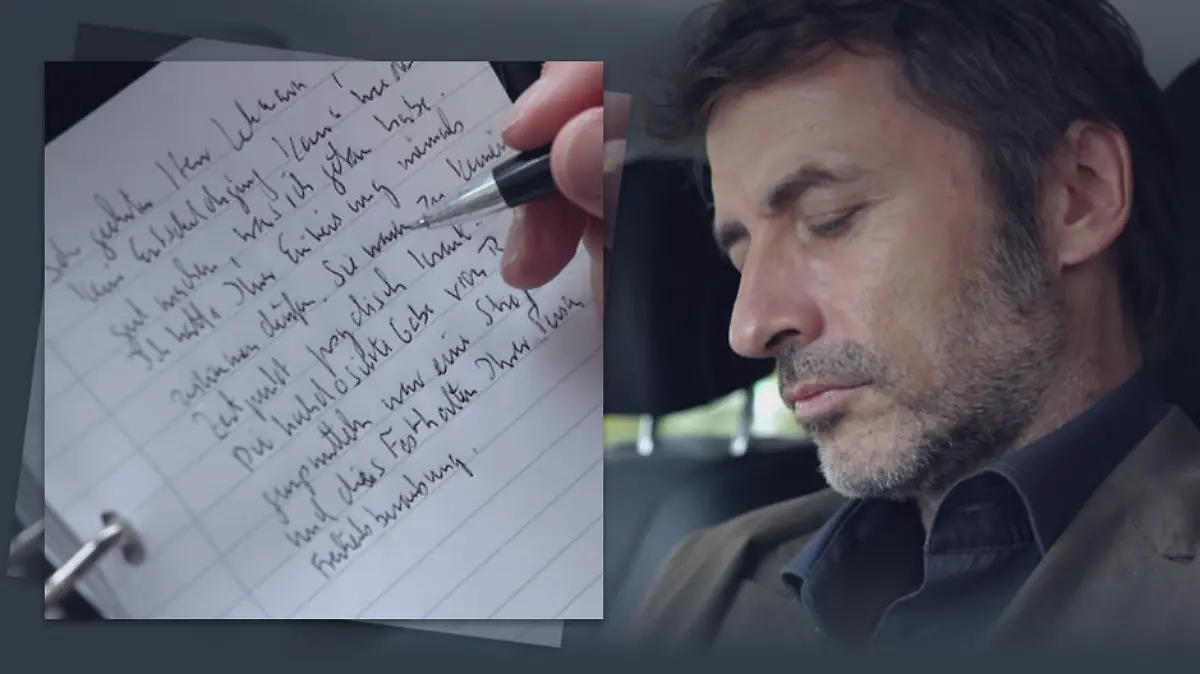 Sehr geehrter Herr Lehmann,
keine Entschuldigung kann
gut machen, was ich getan habe.
Ich hätte Ihrer Einweisung niemals
zustimmen dürfen. Sie waren zu keinem
Zeitpunkt psychisch krank.
Die hochdosierte Gabe von
war eine Straf
und dieses Festhalten Ihrer Person
Freiheitsberaubung.